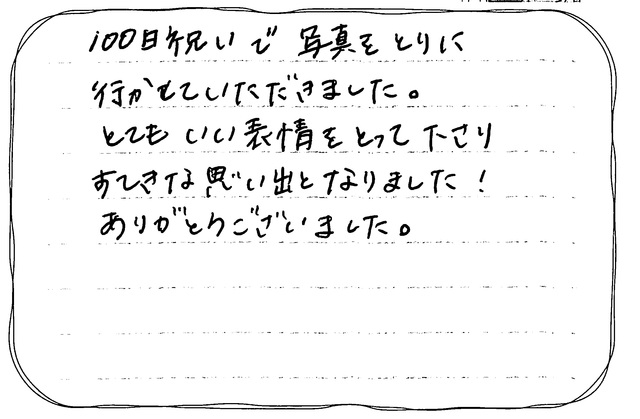 100日祝いで写真をとりに
行かせていただきました。
とてもいい表情をとって下さり
すてきな思い出となりました！
ありがとうございました。